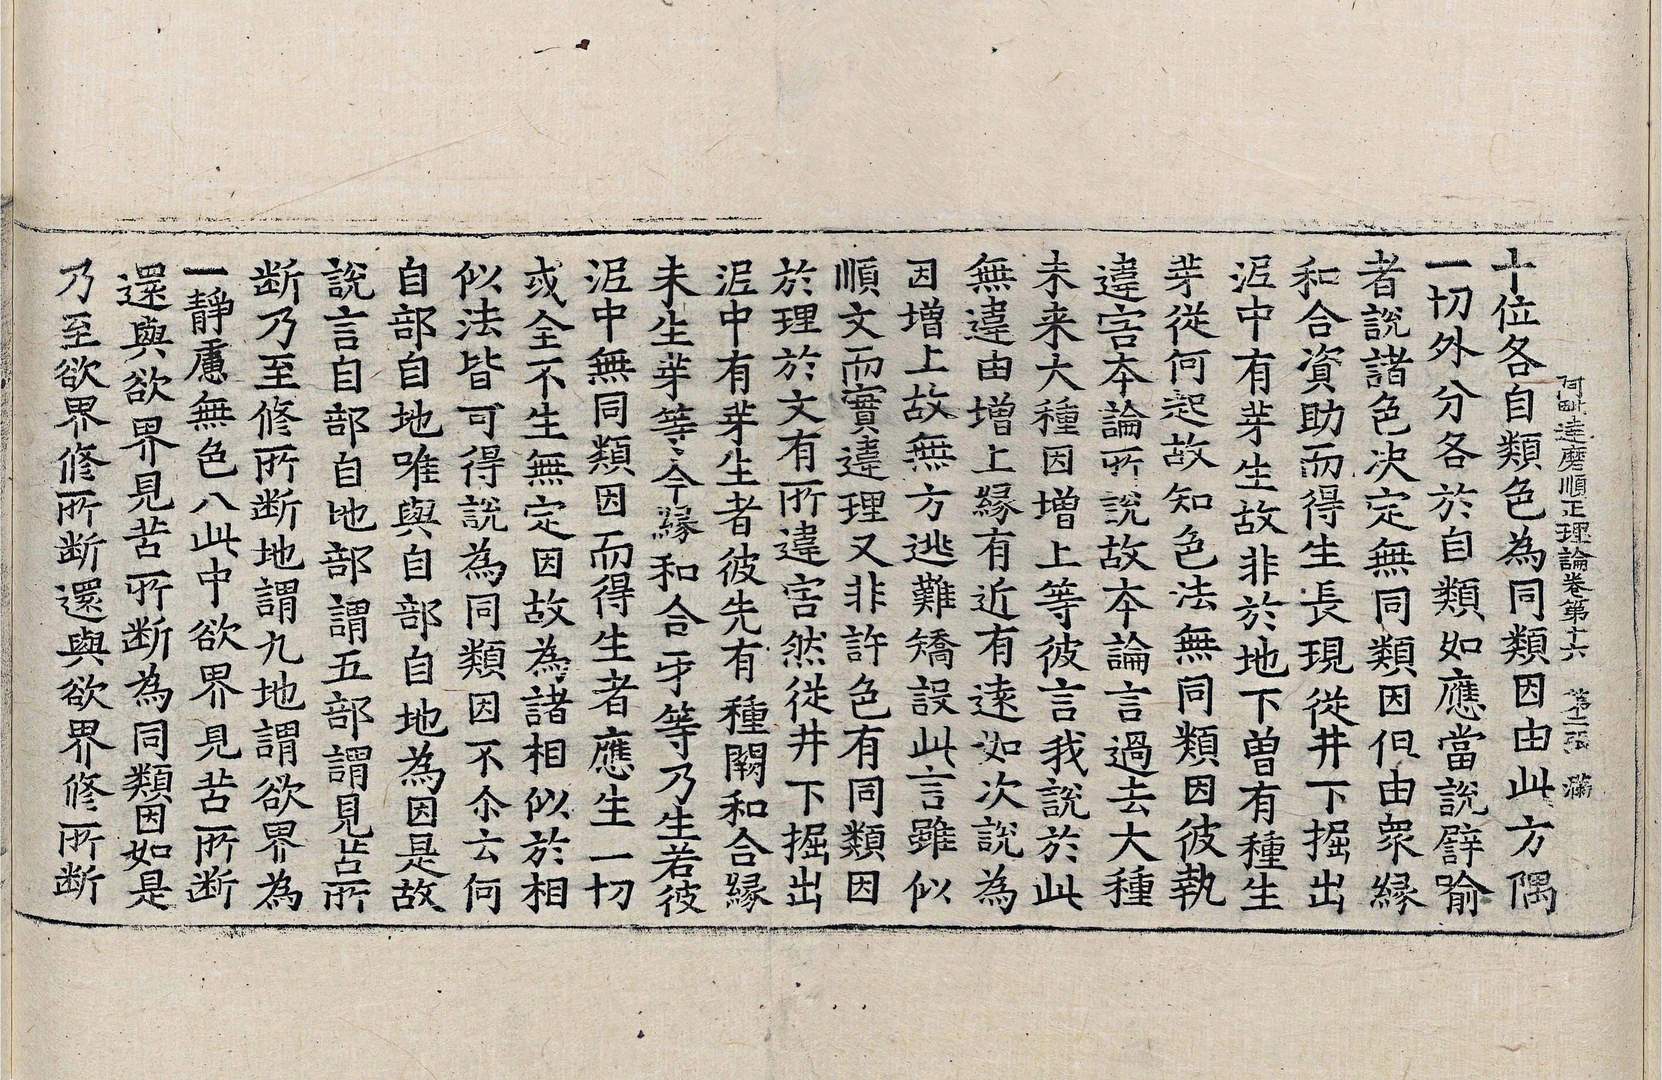 阿毗達磨順正理論卷第十六 第二張 滿
十位各自類色為同類因由此方隅
一切外分各於自類如應當說譬喻
者說諸色决定無同類因但由衆縁
和合資助而得生長現從井下掘出
泥中有芽生故非於地下曽有種生
芽從何起故知色法無同類因彼執
違害本論所說故本論言過去大種
未来大種因增上等彼言我說於此
無違由增上縁有近有遠如次說為
因增上故無方逃難矯設此言雖似
順文而實違理又非許色有同類因
於理於文有所違害然從井下掘出
泥中有芽生者彼先有種闕和合縁
未生芽等今縁和合牙等乃生若彼
泥中無同類因而得生者應生一切
或全不生無定因故為諸相似於相
似法皆可得說為同類因不尒云何
自部自地唯與自部自地為因是故
說言自部自地部謂五部謂見苦所
断乃至修所断地謂九地謂欲界為
一靜慮無色八此中欲界見苦所断
還與欲界見苦所断為同類因如是
乃至欲界修所断還與欲界修所断